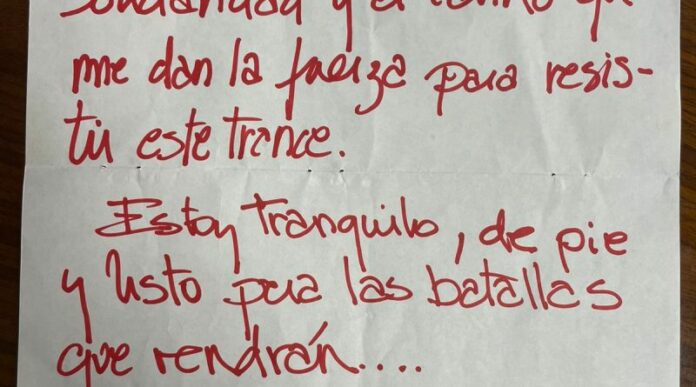 solidaridad y el cariño que
me dan la fuerza para resis-
tir este trance.
Estoy tranquilo, de pie
y listo para las batallas
que vendrán....